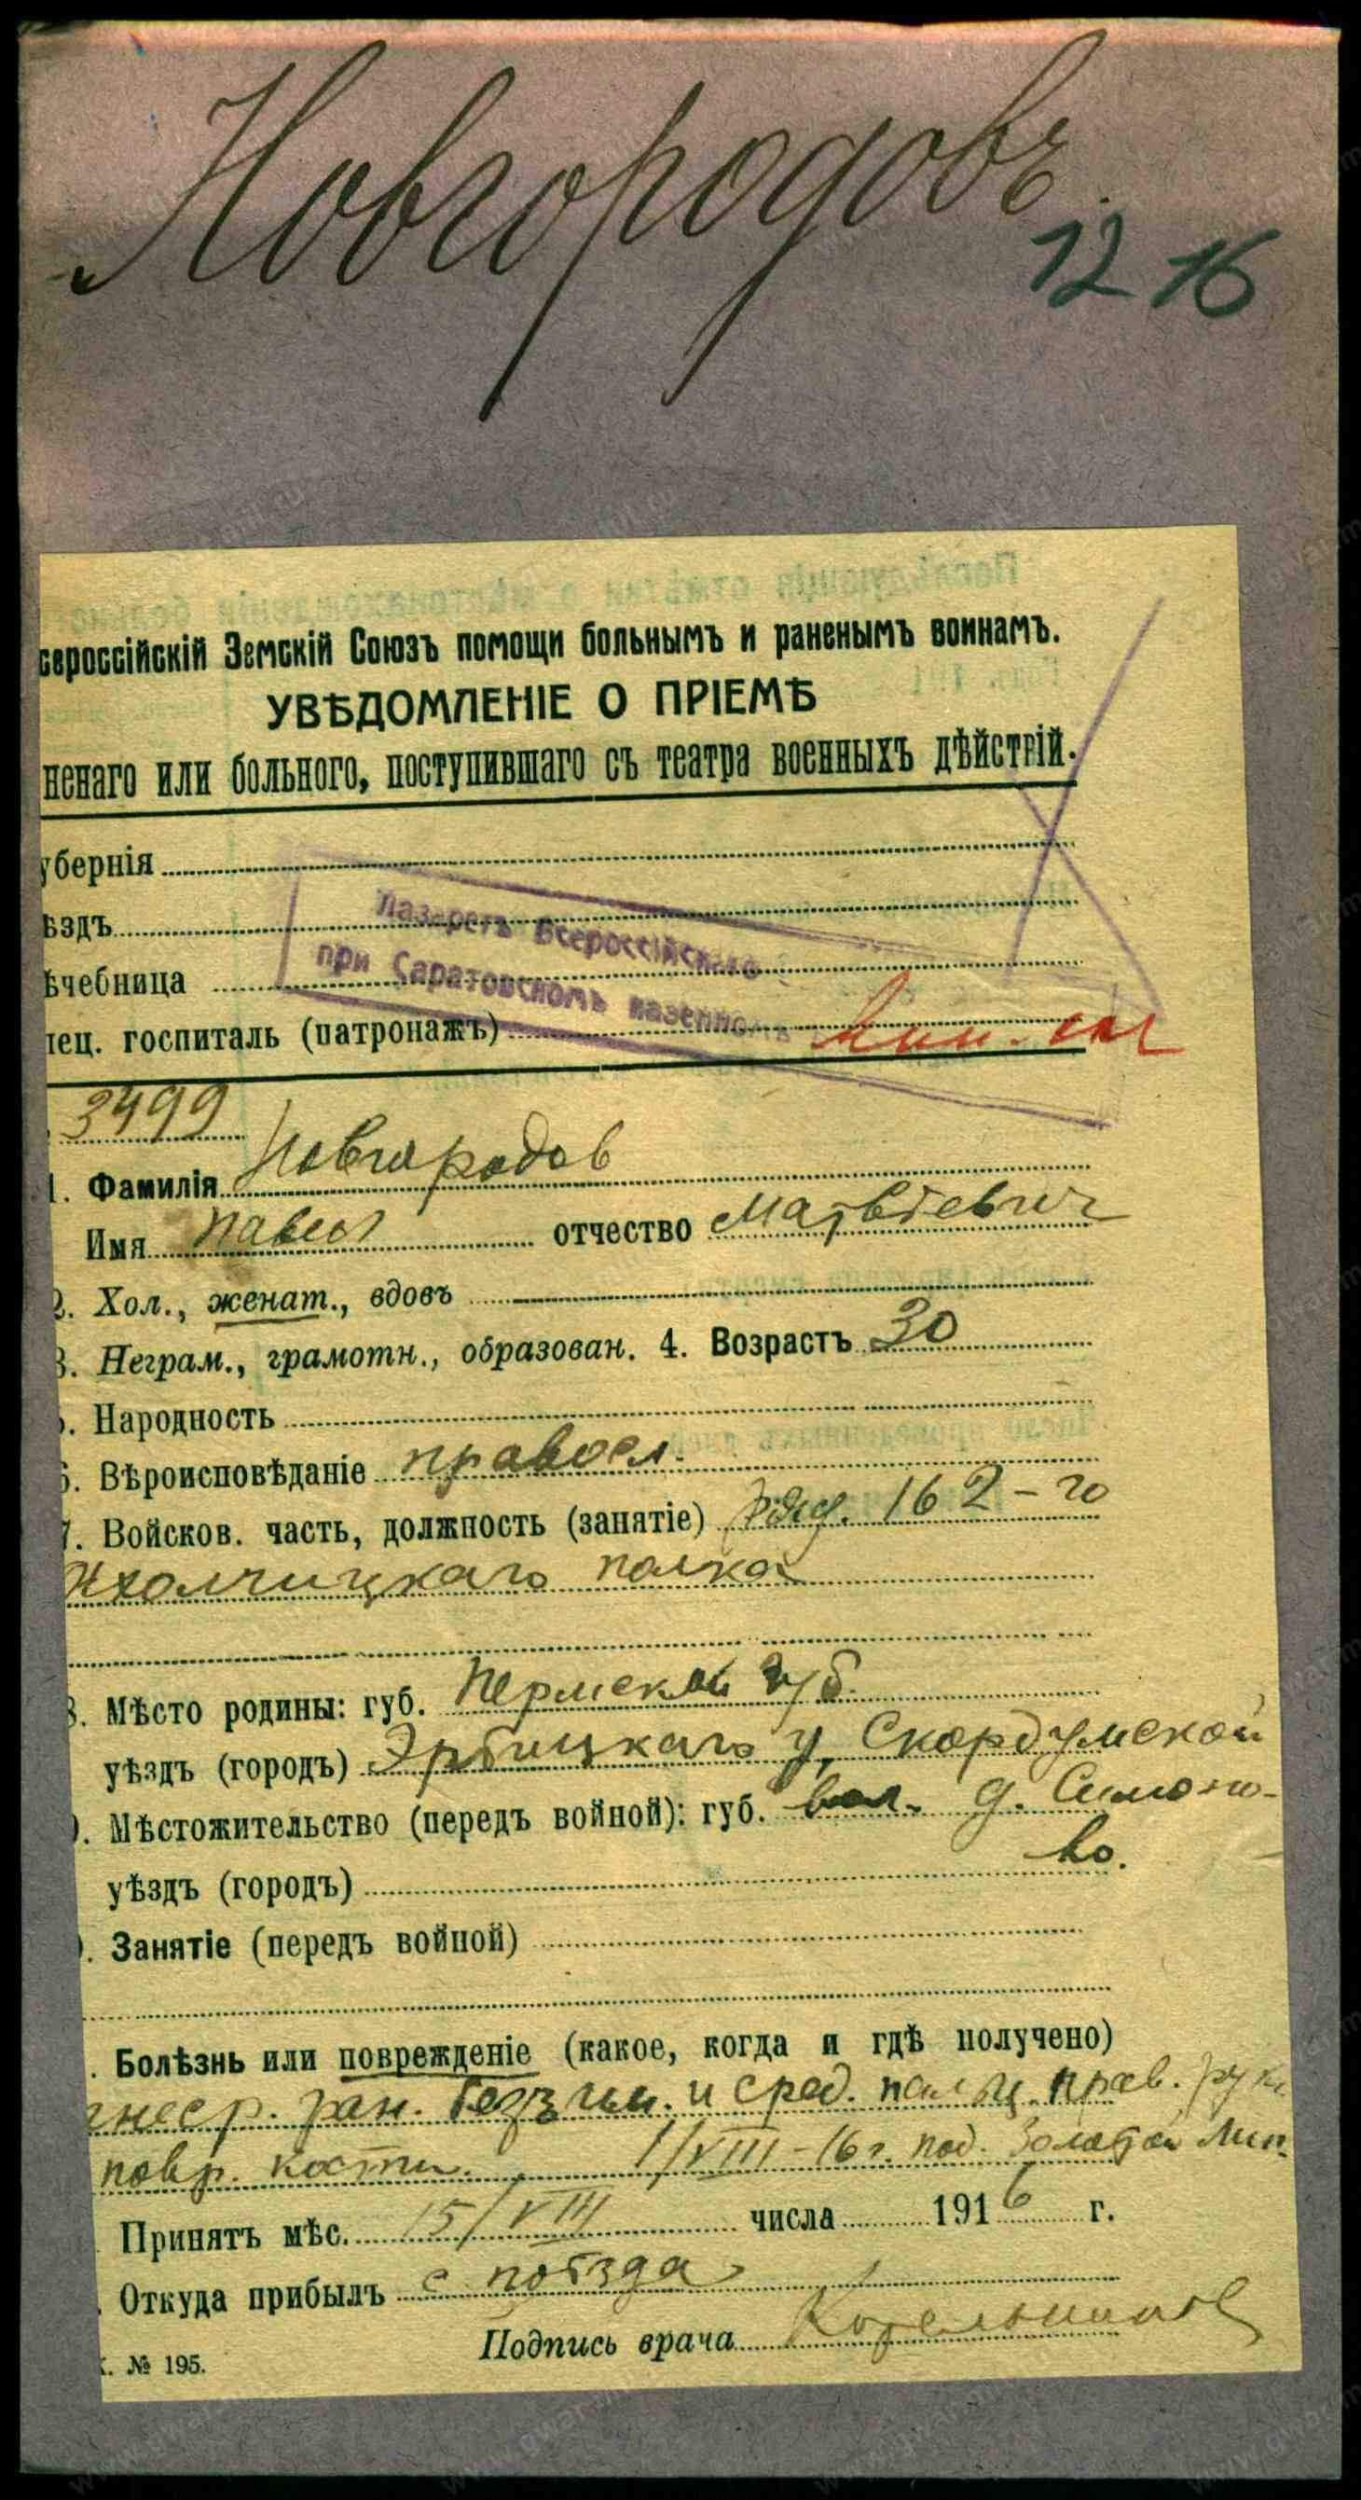 Новгородовъ
12 16
сероссійскій Земскій Союзъ помощи больнымъ и раненымъ воинамъ.
УВѢДОМЛЕНІЕ О ПРІЕМѢ
ненаго или больного, поступившаго съ театра военныхъ дѣйствій.
убернія
ѣздъ
Лазаретъ Всероссійскаго
ѣчебница
при Саратовскомъ казенномъ
пец. госпиталь (патронажъ)
3499
1. Фамилія Новгородов
Имя Павел отчество Матвѣевич
2. Хол., женат., вдовъ
3. Неграм., грамотн., образован. 4. Возрастъ 30
5. Народность
6. Вѣроисповѣданіе правосл.
7. Войсков. часть, должность (занятіе) ряд. 162-го
полка
8. Мѣсто родины: губ. Пермской губ.
уѣздъ (городъ) Эрбицкаго у, Скордумской
9. Мѣстожительство (передъ войной): губ. вол. д. Симоно-
уѣздъ (городъ) во.
Занятіе (передъ войной)
Болѣзнь или поврежденіе (какое, когда и гдѣ получено)
гнестр. ран. безъим. и сред. пальц. прав. руки
повр. кости. 1/VIII-16 г. под. Золотой Лип.
Принятъ мѣс. 15/VIII числа 1916 г.
Откуда прибылъ с поѣзда
Подпись врача Котельников
№ 195.